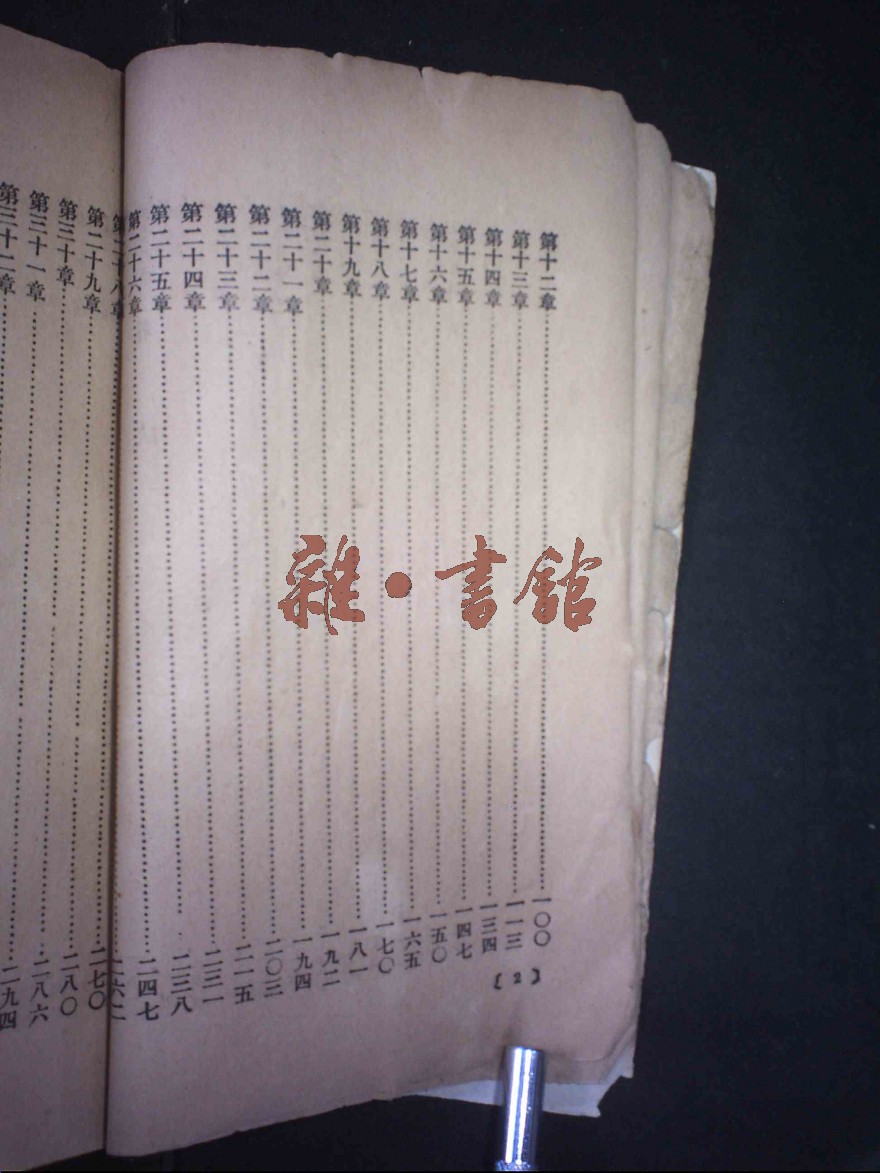 第十二章……一〇〇
第十三章……一一三
第十四章……一三四
第十五章……一四七
第十六章……一五〇
第十七章……一六五
第十八章……一七〇
第十九章……一八一
第二十章……一九二
第二十一章……一九四
第二十二章……二〇三
第二十三章……二一五
第二十四章……二三一
第二十五章……二三八
第二十六章……二四七
〔2〕
第二十八章……二六二
第二十九章……二七〇
第三十章……二八〇
第三十一章……二八六
第三十二章……二九四
雜·書館